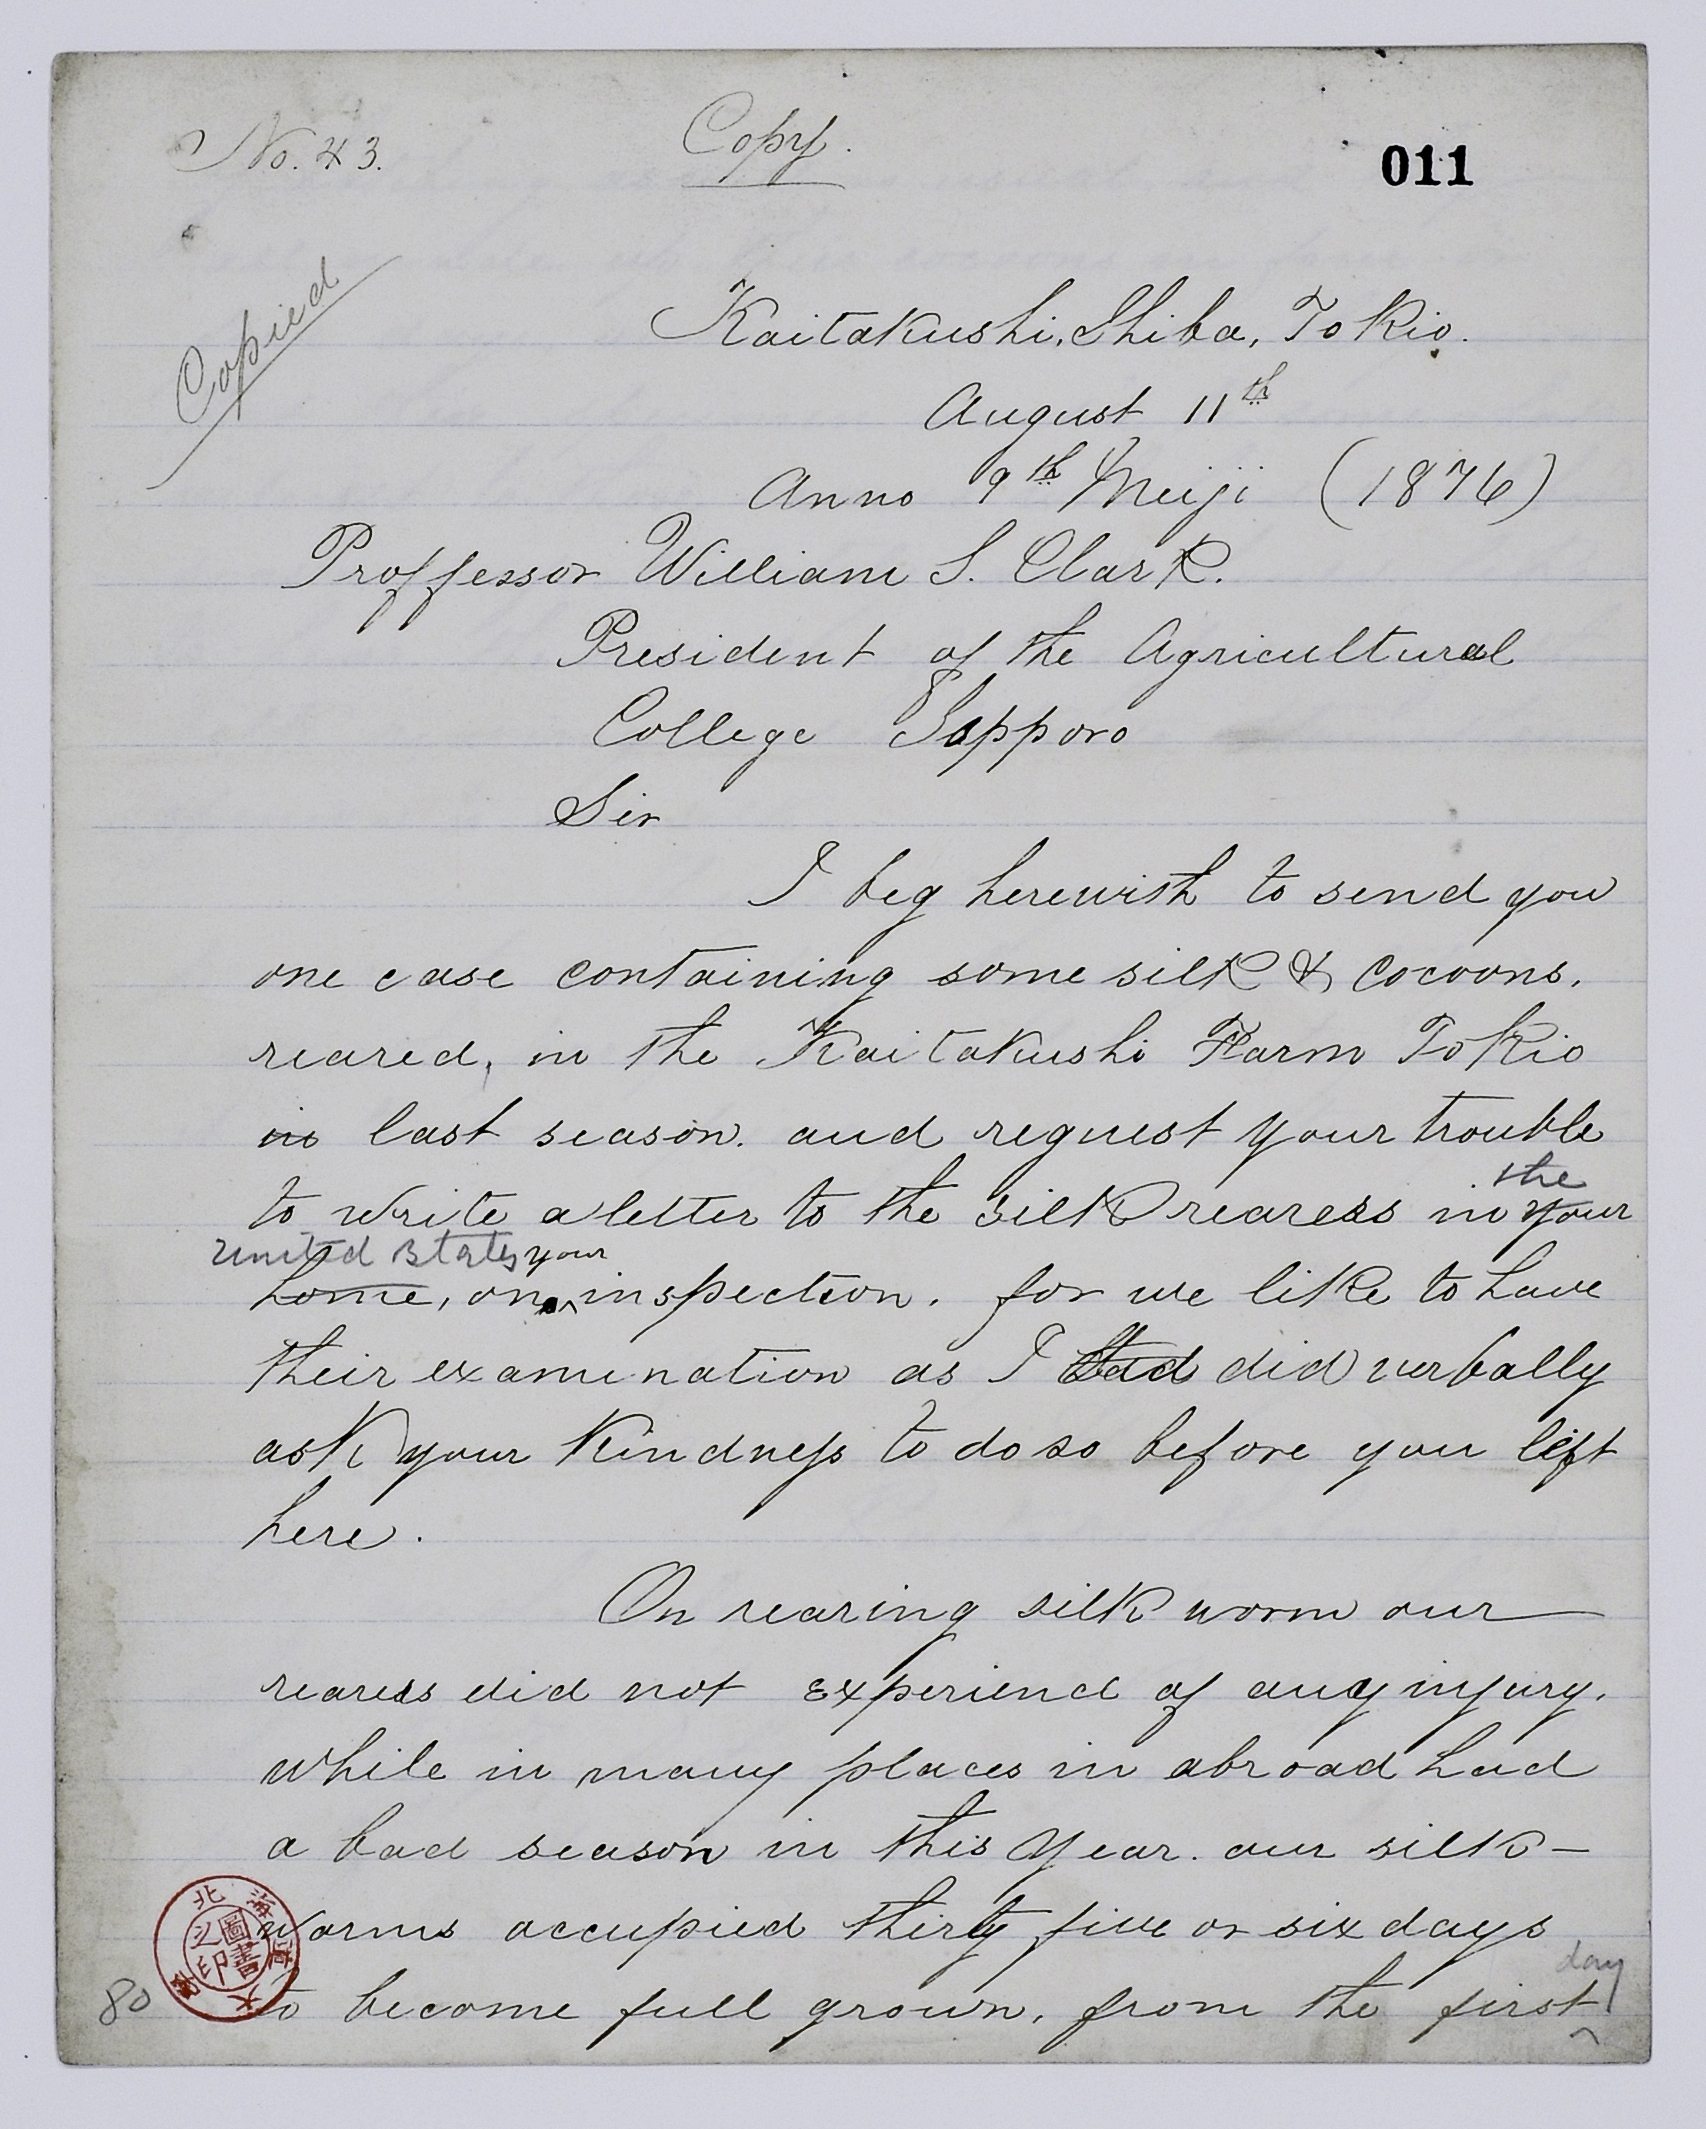 No. 43.
Copy.
011
Copied
Kaitakushi, Shiba, Tokio.
August 11th
Anno 9th Meiji (1876)
Proffessor William S. Clark.
President of the Agricultural
College Sapporo
Sir
I beg herewith to send you
one case containing some silk & cocoons.
reared, in the Kaitakushi Farm Tokio
in last season. and request your trouble
the
to write a letter to the silk rearers in your
United States your
home, on inspection. for we like to have
their examination as I did verbally
ask your kindness to do so before you left
here.
On rearing silk worm our
rearers did not experience of any injury.
while in many places in abroad had
a bad season in this year. our silk-
worms occupied thirty five or six days
day
80 to become full grown, from the first
北海道大學
圖書之印